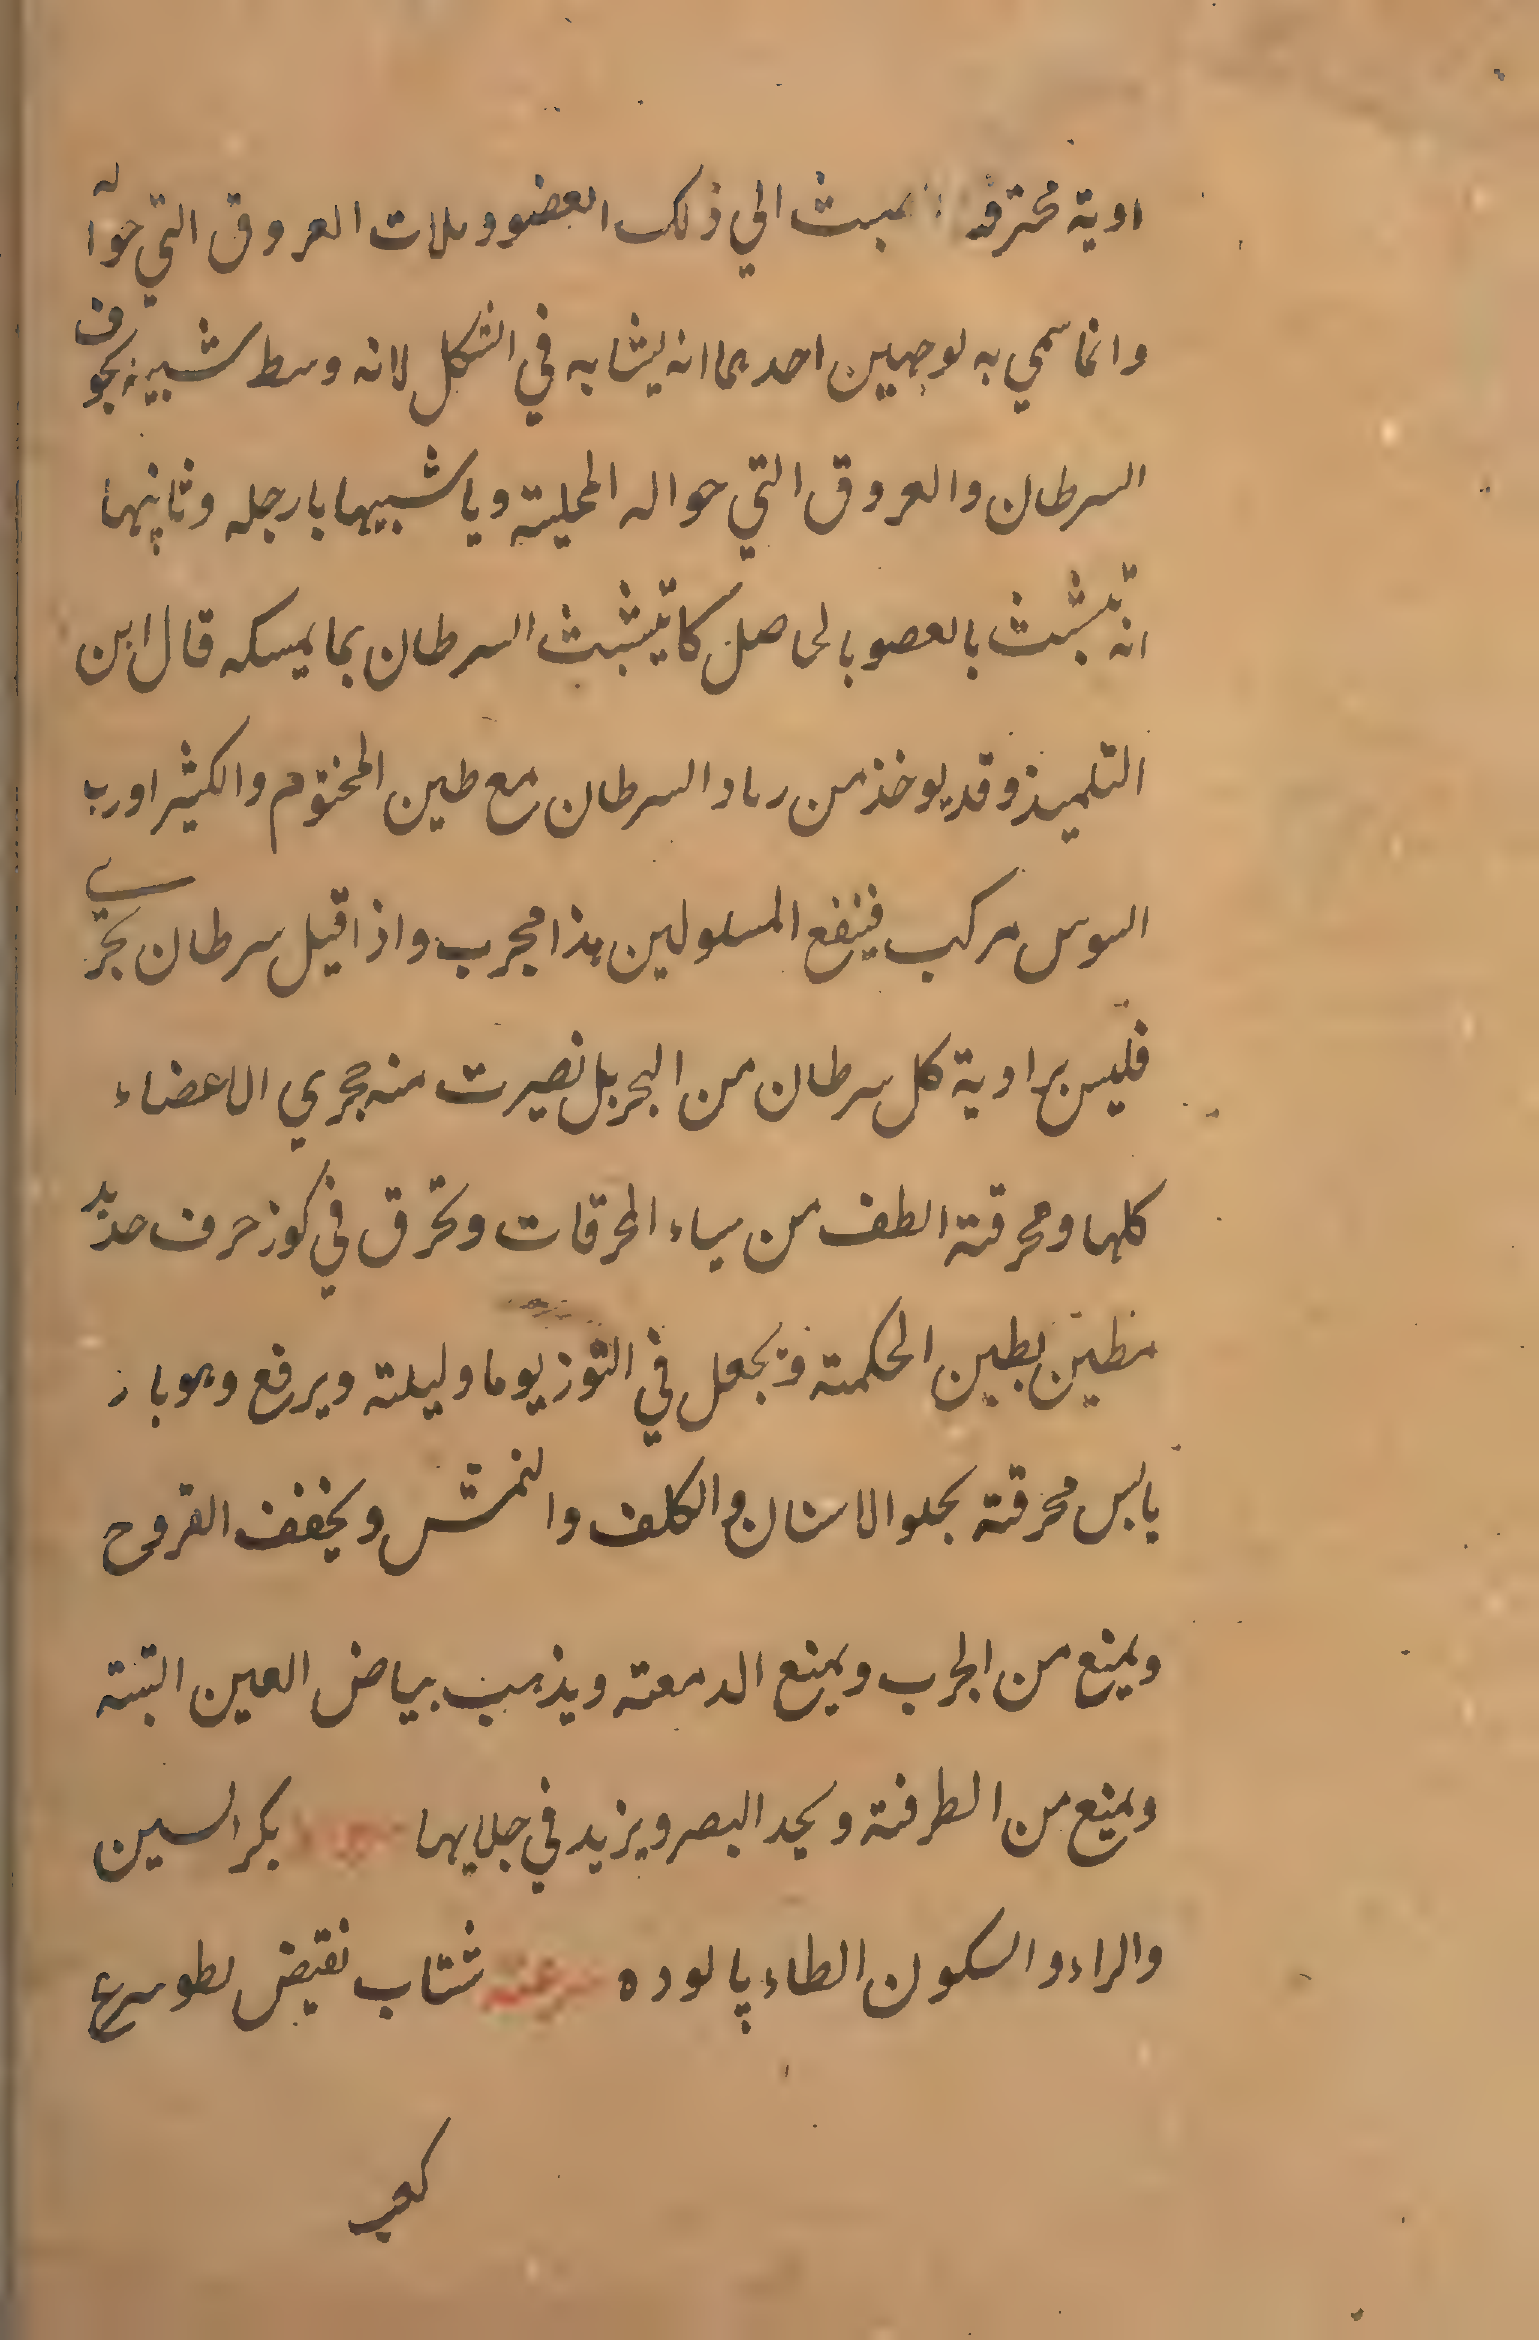 اوية محترقه الي ذلك العضو وملات العروق التي حواله
وانما سمي به لوجهين احدهما انه يشابه في الشكل لانه وسط شبيه بجوف
السرطان والعروق التي حواله الممليته ويا شبيها بارجله وثانيهما
انه يتشبث بالعضو بالحاصل كما يتشبث السرطان بما يمسكه قال ابن
التلميذ وقد يوخذ من رماد السرطان مع طين المختوم والكثيرا ورب
السوس مركب فينفع المسلولين هذا مجرب واذا قيل سرطان بحري
فليس براوية كل سرطان من البحر بل نصيرت منه مجري الاعضاء
كلها ومحرقته الطف من سياء المحرقات وتحرق في كوز حرف حديد
مطين بطين الحكمته وتجعل في التوز يوما وليلته ويرفع وهو بار
يابس محرقته يجلو الاسنان والكلف والنمش ويخفف القروح
ويمنع من الجرب ويمنع الدمعته ويذهب بياض العين البتته
ويمنع من الطرفته ويحد البصر ويزيد في جلايها بكر السين
والراء والسكون الطاء پالوده سرعته شتاب نقيض بطو سرع